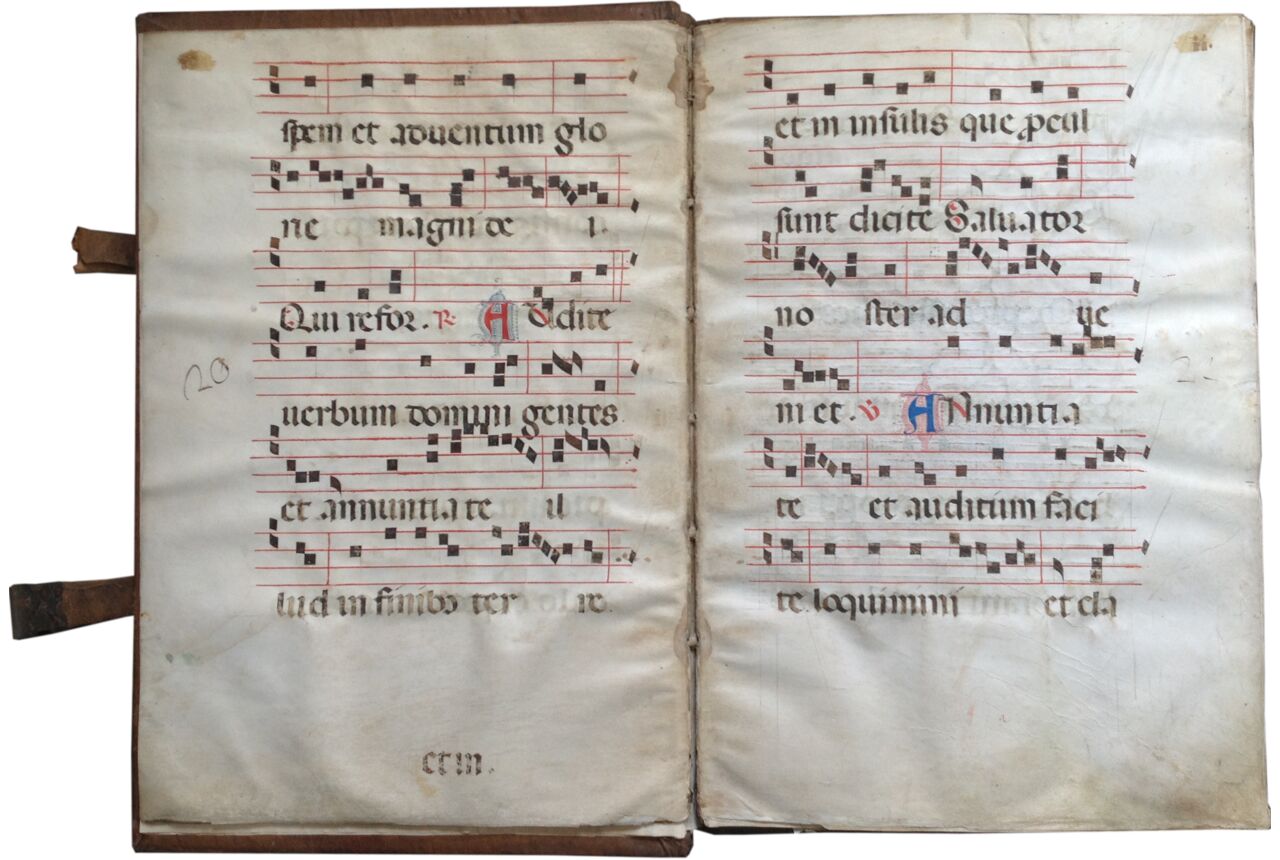 spem et aduentum glo
rie magni de i
Qui refor. R Audite
uerbum domini gentes
et annuntiate il
lud in finibꝰ ter re.
et in.
20
et in insulis que ꝓcul
sunt dicite Saluator
no ster ad ue
ni et. V Annuntia
te et auditum faci
te. loquimini et cla